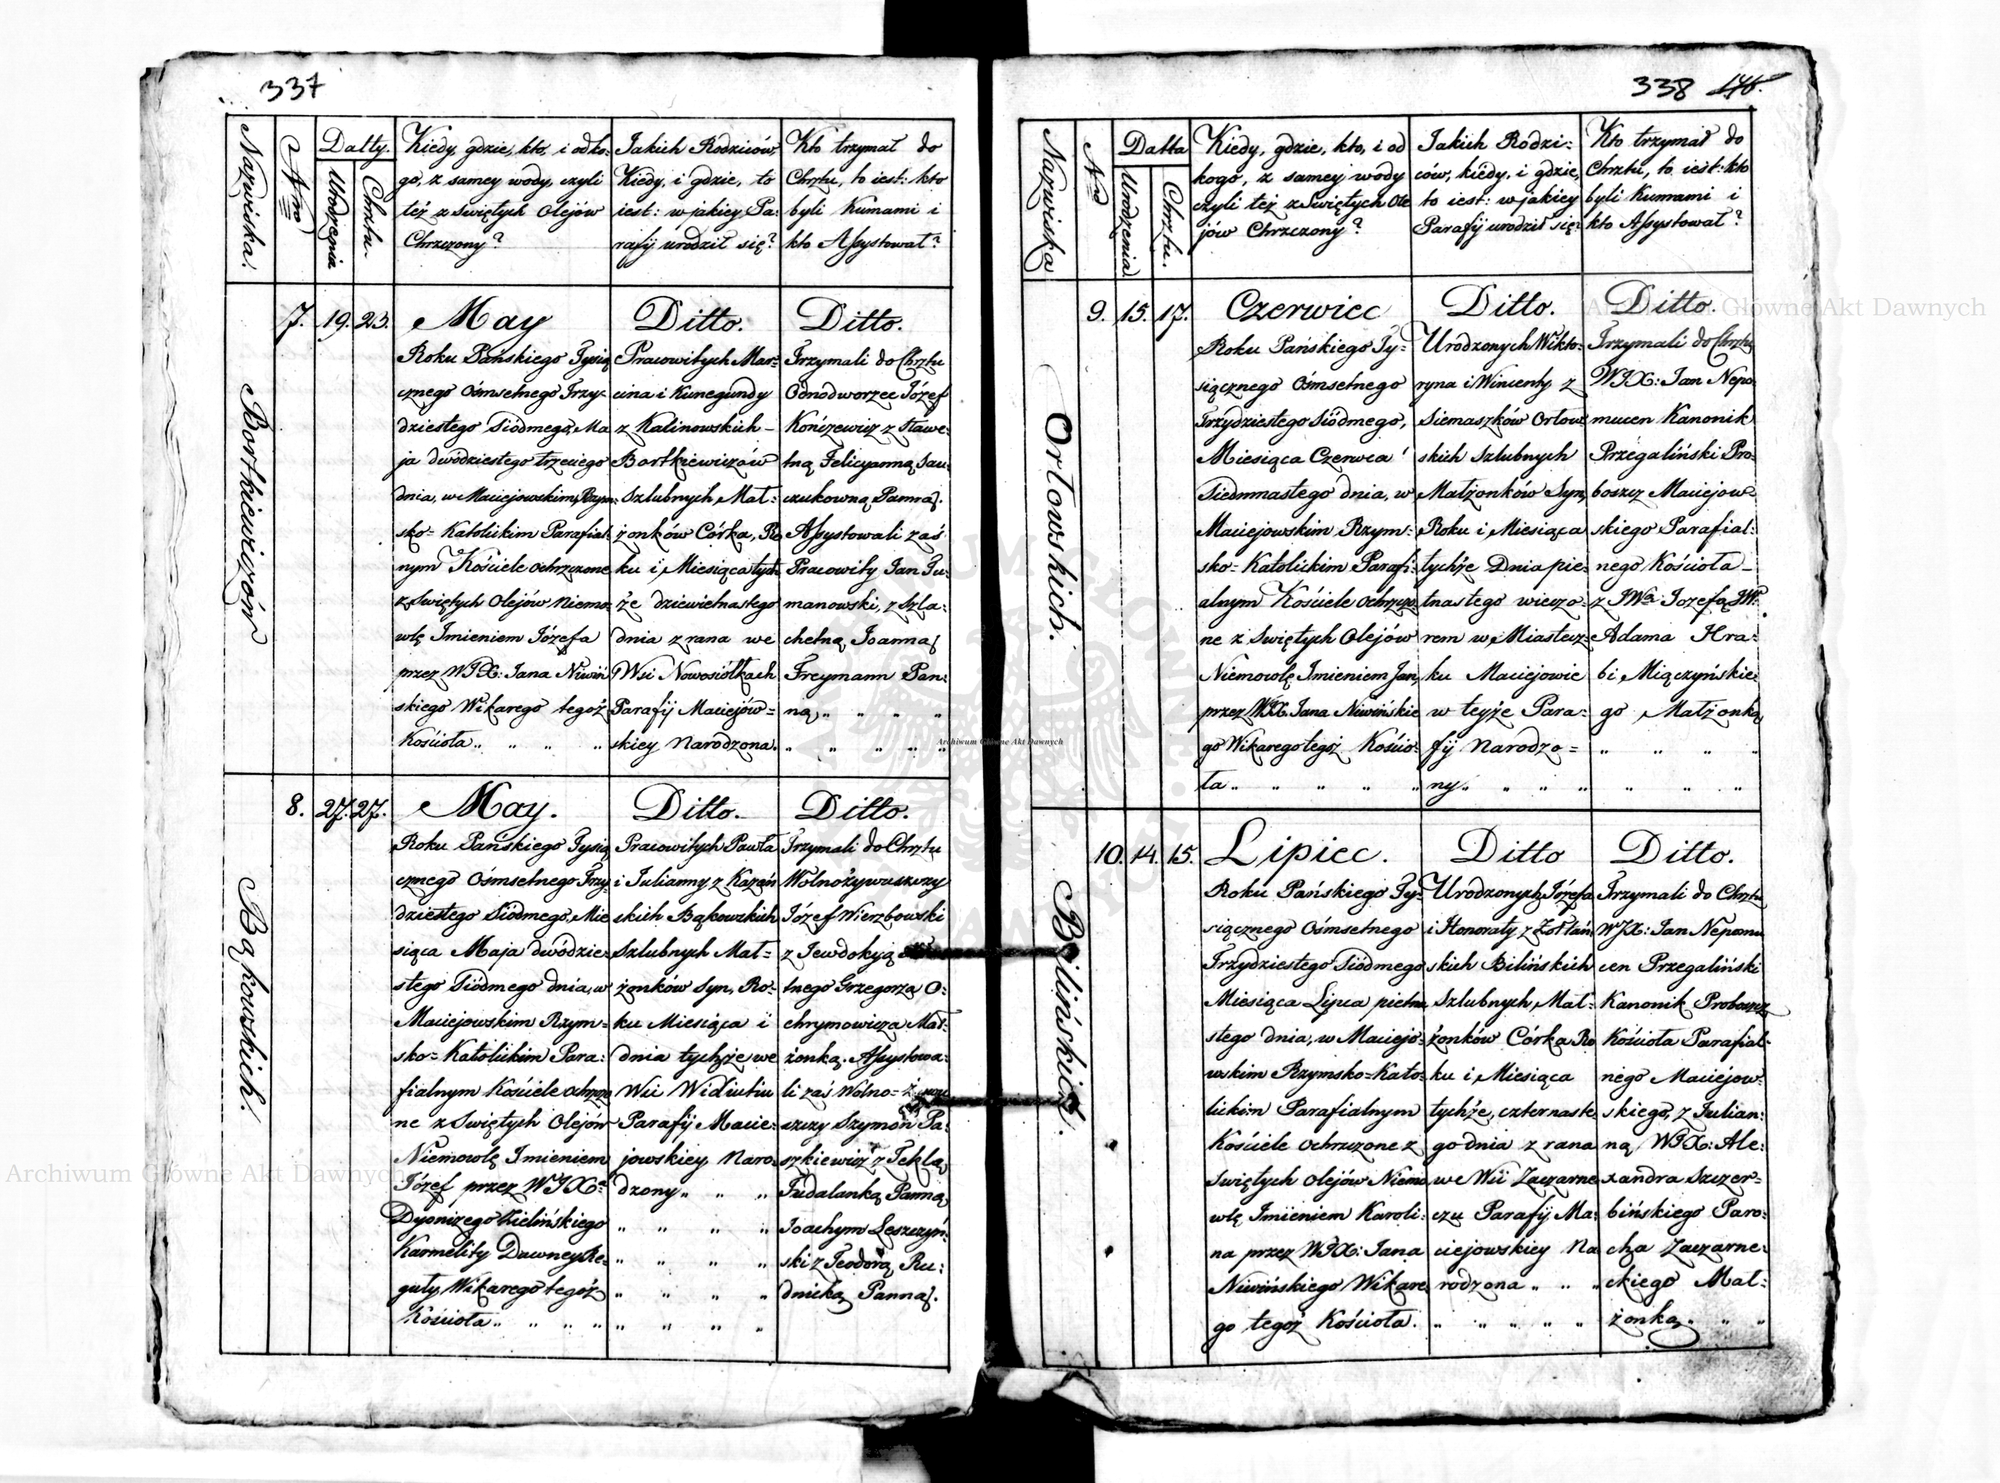 337
Nazwiska.
Nro
Datty.
Urodzenia
Chrztu.
Kiedy, gdzie, kto, i od ko-
go, z samey wody, czyli
też z Swiętych Olejów
Chrzczony?
Jakich Rodziców,
Kiedy, i gdzie, to
iest: w jakiey Pa-
rafij urodził się?
Kto trzymał do
Chrztu, to iest: kto
byli Kumami i
kto Assystował?
Bortkiewiczów
7. 19. 23.
May
Roku Pańskiego Tysią
cznego Ośmsetnego Trzy-
dziestego Siódmego, Ma
ja dwódziestego trzeciego
dnia, w Maciejowskim, Rzym-
sko-Katolickim Parafial-
nym Kościele ochrzczone
z Swiętych Olejów Niemo
wlę Imieniem Józefa
przez WJX: Jana Niwiń
skiego Wikarego tegoż
Kościoła „ „ „ „
Ditto.
Pracowitych Mar-
cina i Kunegundy
z Kalinowskich –
Bortkiewiczów
Szlubnych Mał-
żonków Córka, Ro
ku i Miesiąca tych
że dziewietnastego
dnia z rana we
Wsi Nowosiółkach
Parafij Maciejów-
skiey Narodzona.
Ditto.
Trzymali do Chrztu
Odnodworzec Józef
Kończewicz z Stawe-
tną Felicyanną Sau-
czukowną Panną.
Assystowali zaś
Pracowity Jan Tu-
manowski, z Szla-
chetną Joanną
Freymann Pan-
ną „ „ „ „
„ „ „ „ „
Bąkowskich.
8. 27. 27.
May.
Roku Pańskiego Tysią
cznego Ośmsetnego Trzy-
dziestego Siódmego, Mie
siąca Maja dwódzie-
stego Siódmego dnia, w
Maciejowskim Rzym-
sko-Katolickim Para-
fialnym Kościele ochrzczo
ne z Swiętych Olejów
Niemowlę Imieniem
Józef przez WJXa
Dyonizego Zielińskiego
Karmelity Dawney Re-
guły, Wikarego tegoż
Kościoła „ „ „ „
Ditto.
Pracowitych Pawła
i Julianny z Kazań
skich Bąkowskich
Szlubnych Mał-
żonków Syn, Ro-
ku Miesiąca i
dnia tychże we
Wsi Widiutiu
Parafij Macie-
jowskiey Naro-
dzony „ „ „
„ „ „ „
„ „ „ „
„ „ „ „
„ „ „ „
Ditto.
Trzymali do Chrztu
Wolnożywuszczy
Józef Wierzbowski
z Jewdokyją
tnego Grzegorza O-
chrymowicza Mał-
żonką. Assystowa-
li zaś Wolno-żywu
szczy Szymon Pa-
szkiewicz z Teklą
Judalanką Panną
Joachym Leszczyń-
ski z Teodorą Ru-
dnicką Panną.
338 176.
Nazwiska
Nro
Datta
Urodzenia.
Chrztu.
Kiedy, gdzie, kto, i od
kogo, z samey wody
czyli też z Swiętych Ole
jów Chrzczony?
Jakich Rodzi-
ców, kiedy, i gdzie,
to iest: w jakiey
Parafij urodził się?
Kto trzymał do
Chrztu, to iest: kto
byli Kumami i
kto Assystował?
Orłowskich.
9. 15. 17.
Czerwiec
Roku Pańskiego Ty-
siącznego Ośmsetnego
Trzydziestego Siódmego,
Miesiąca Czerwca
Siedmnastego dnia, w
Maciejowskim Rzym-
sko-Katolickim Parafi-
alnym Kościele ochrzczo
ne z Swiętych Olejów
Niemowlę Imieniem Jan,
przez WJX. Jana Niwińskie
go Wikarego tegoż Kościo-
ła „ „ „ „ „
Ditto.
Urodzonych Wikto-
ryna i Wincenty z
Siemaszków Orłow-
skich Szlubnych
Małżonków Syn,
Roku i Miesiąca
tychże Dnia pie-
tnastego wieczo-
rem w Miastecz-
ku Maciejowie
w teyże Para-
fij Narodzo-
ny „ „ „ „
Ditto.
Trzymali do Chrztu
WJX: Jan Nepo-
mucen Kanonik
Przegaliński Pro-
boszcz Maciejow-
skiego Parafial-
nego Kościoła –
z JWa: Jozefą JW.
Adama Hra-
bi, Miączyńskie-
go Małżonką
„ „ „ „
„ „ „
Bilińskich.
10. 14. 15.
Lipiec.
Roku Pańskiego Ty-
siącznego Ośmsetnego
Trzydziestego Siódmego
Miesiąca Lipca pietna
stego dnia, w Maciejo-
wskim Rzymsko-Kato-
lickim Parafialnym
Kościele ochrzczone z
Swiętych Olejów Niemo
wlę Imieniem Karoli-
na przez WJX: Jana
Niwińskiego Wikare
go tegoż Kościoła.
Ditto
Urodzonych Józefa
i Honoraty z Żołłań
skich Bilińskich
Szlubnych, Mał-
żonków Córka Ro
ku i Miesiąca
tychże, czternaste
go dnia z rana
we Wsi Zaczarne
czu Parafij Ma-
ciejowskiey Na
rodzona „ „ „
„ „ „ „ „
Ditto.
Trzymali do Chrztu
WJX: Jan Nepomu
cen Przegaliński
Kanonik Proboszcz
Kościoła Parafial-
nego Maciejow-
skiego, z Julian-
ną WJX: Ale-
xandra Szczer-
bińskiego Paro-
cha Zaczarne-
ckiego Mał-
żonką. „ „
Archiwum Główne Akt Dawnych
Archiwum Główne Akt Dawnych
Archiwum Główne Akt Dawnych